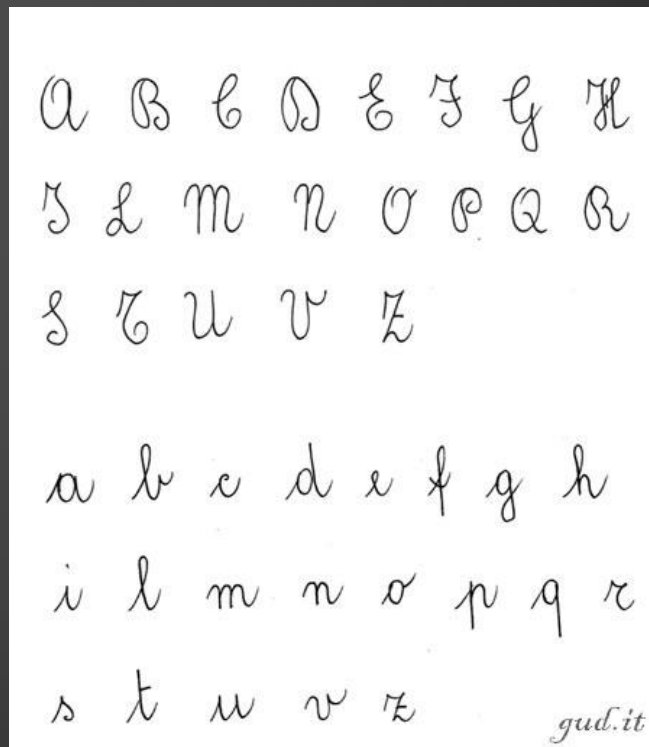 A B C D E F G H
I L M N O P Q R
S T U V Z
a b c d e f g h
i l m n o p q r
s t u v z
gud.it